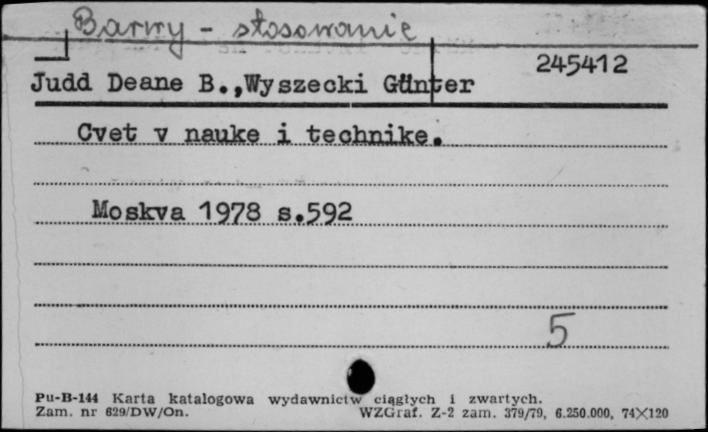 Barwy - stosowanie
245412
Judd Deane B.,Wyszecki Günter
Cvet v nauke i technike.
Moskva 1978 s.592
5
Pu-B-144 Karta katalogowa wydawnictw ciągłych i zwartych.
Zam. nr 629/DW/On. WZGraf. Z-2 zam. 379/79, 6.250.000, 74×120